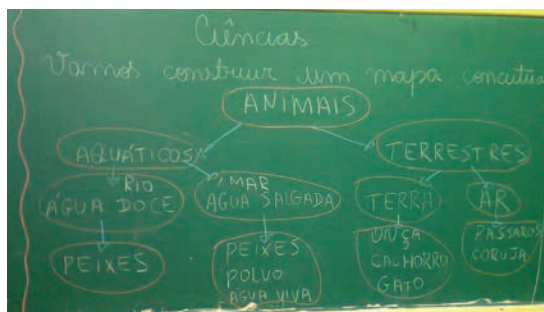 Ciências
Vamos construir um mapa conceitua
ANIMAIS
AQUÁTICOS
TERRESTRES
RIO
ÁGUA DOCE
MAR
ÁGUA SALGADA
TERRA
AR
PEIXES
PEIXES
POLVO
ÁGUA VIVA
ONÇA
CACHORRO
GATO
PÁSSAROS
CORUJA